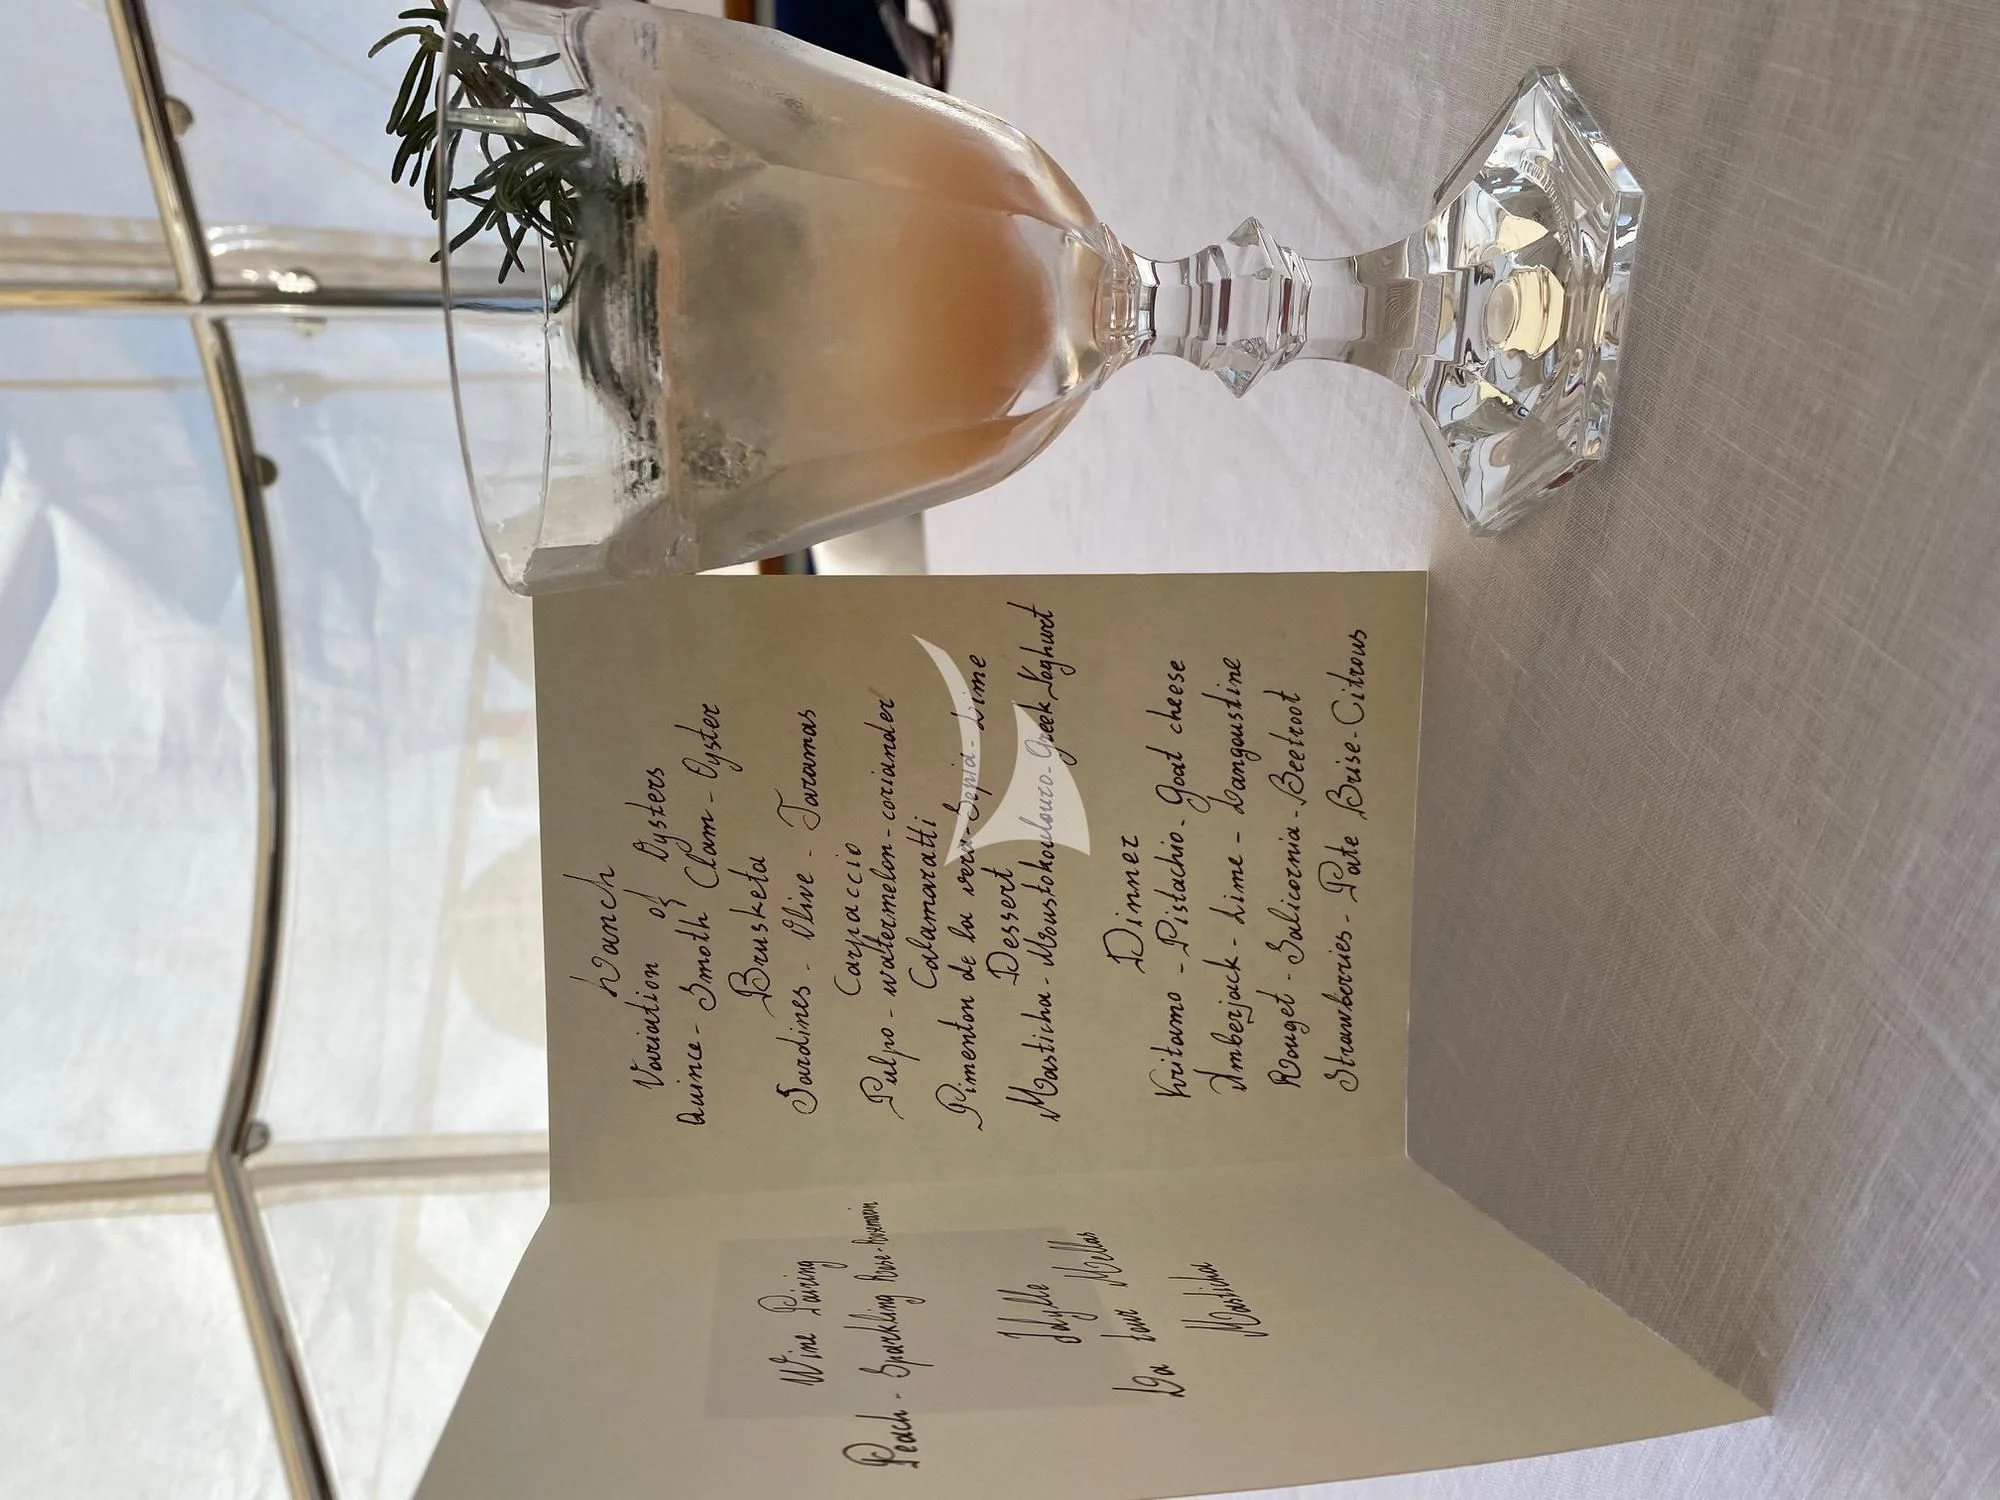 Wine Pairing
Peach - Sparkling Rose - Rosemarin
Idylle
La tour Mellas
Masticha
Lunch
Variation of Oysters
Quince - Smoth Clam - Oyster
Brusketa
Sardines - Olive - Taramas
Carpaccio
Pulpo - watermelon - coriander
Calamaratti
Pimenton de la vera - Sepia - Lime
Dessert
Masticha - Moustokoulouro - Greek Yaghurt
Dinner
Kritamo - Pistachio - Goat cheese
Amberjack - Lime - Langoustine
Rouget - Salicornia - Beetroot
Strawberries - Pate Brise - Citrous